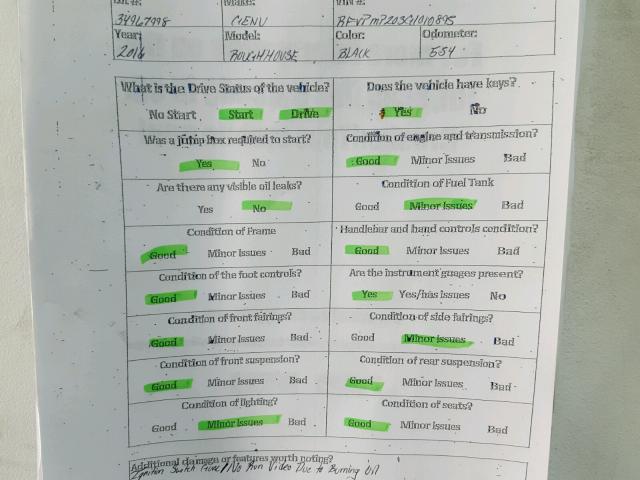 Make:
34967998 GENU RFVPMP203G1010895
Year: Model: Color: Odometer:
2016 ROUGHHOUSE BLACK 554
What is the Drive Status of the vehicle? Does the vehicle have keys?
No Start Start Drive Yes No
Was a jump box required to start? Condition of engine and transmission?
Yes No Good Minor Issues Bad
Are there any visible oil leaks? Condition of Fuel Tank
Yes No Good Minor Issues Bad
Condition of Frame Handlebar and hand controls condition?
Good Minor Issues Bad Good Minor Issues Bad
Condition of the foot controls? Are the instrument guages present?
Good Minor Issues Bad Yes Yes/has issues No
Condition of front fairings? Condition of side fairings?
Good Minor Issues Bad Good Minor Issues Bad
Condition of front suspension? Condition of rear suspension?
Good Minor Issues Bad Good Minor Issues Bad
Condition of lighting? Condition of seats?
Good Minor Issues Bad Good Minor Issues Bad
Additional damage or features worth noting?
Ignition Switch / No Run Video Due to Burning Oil